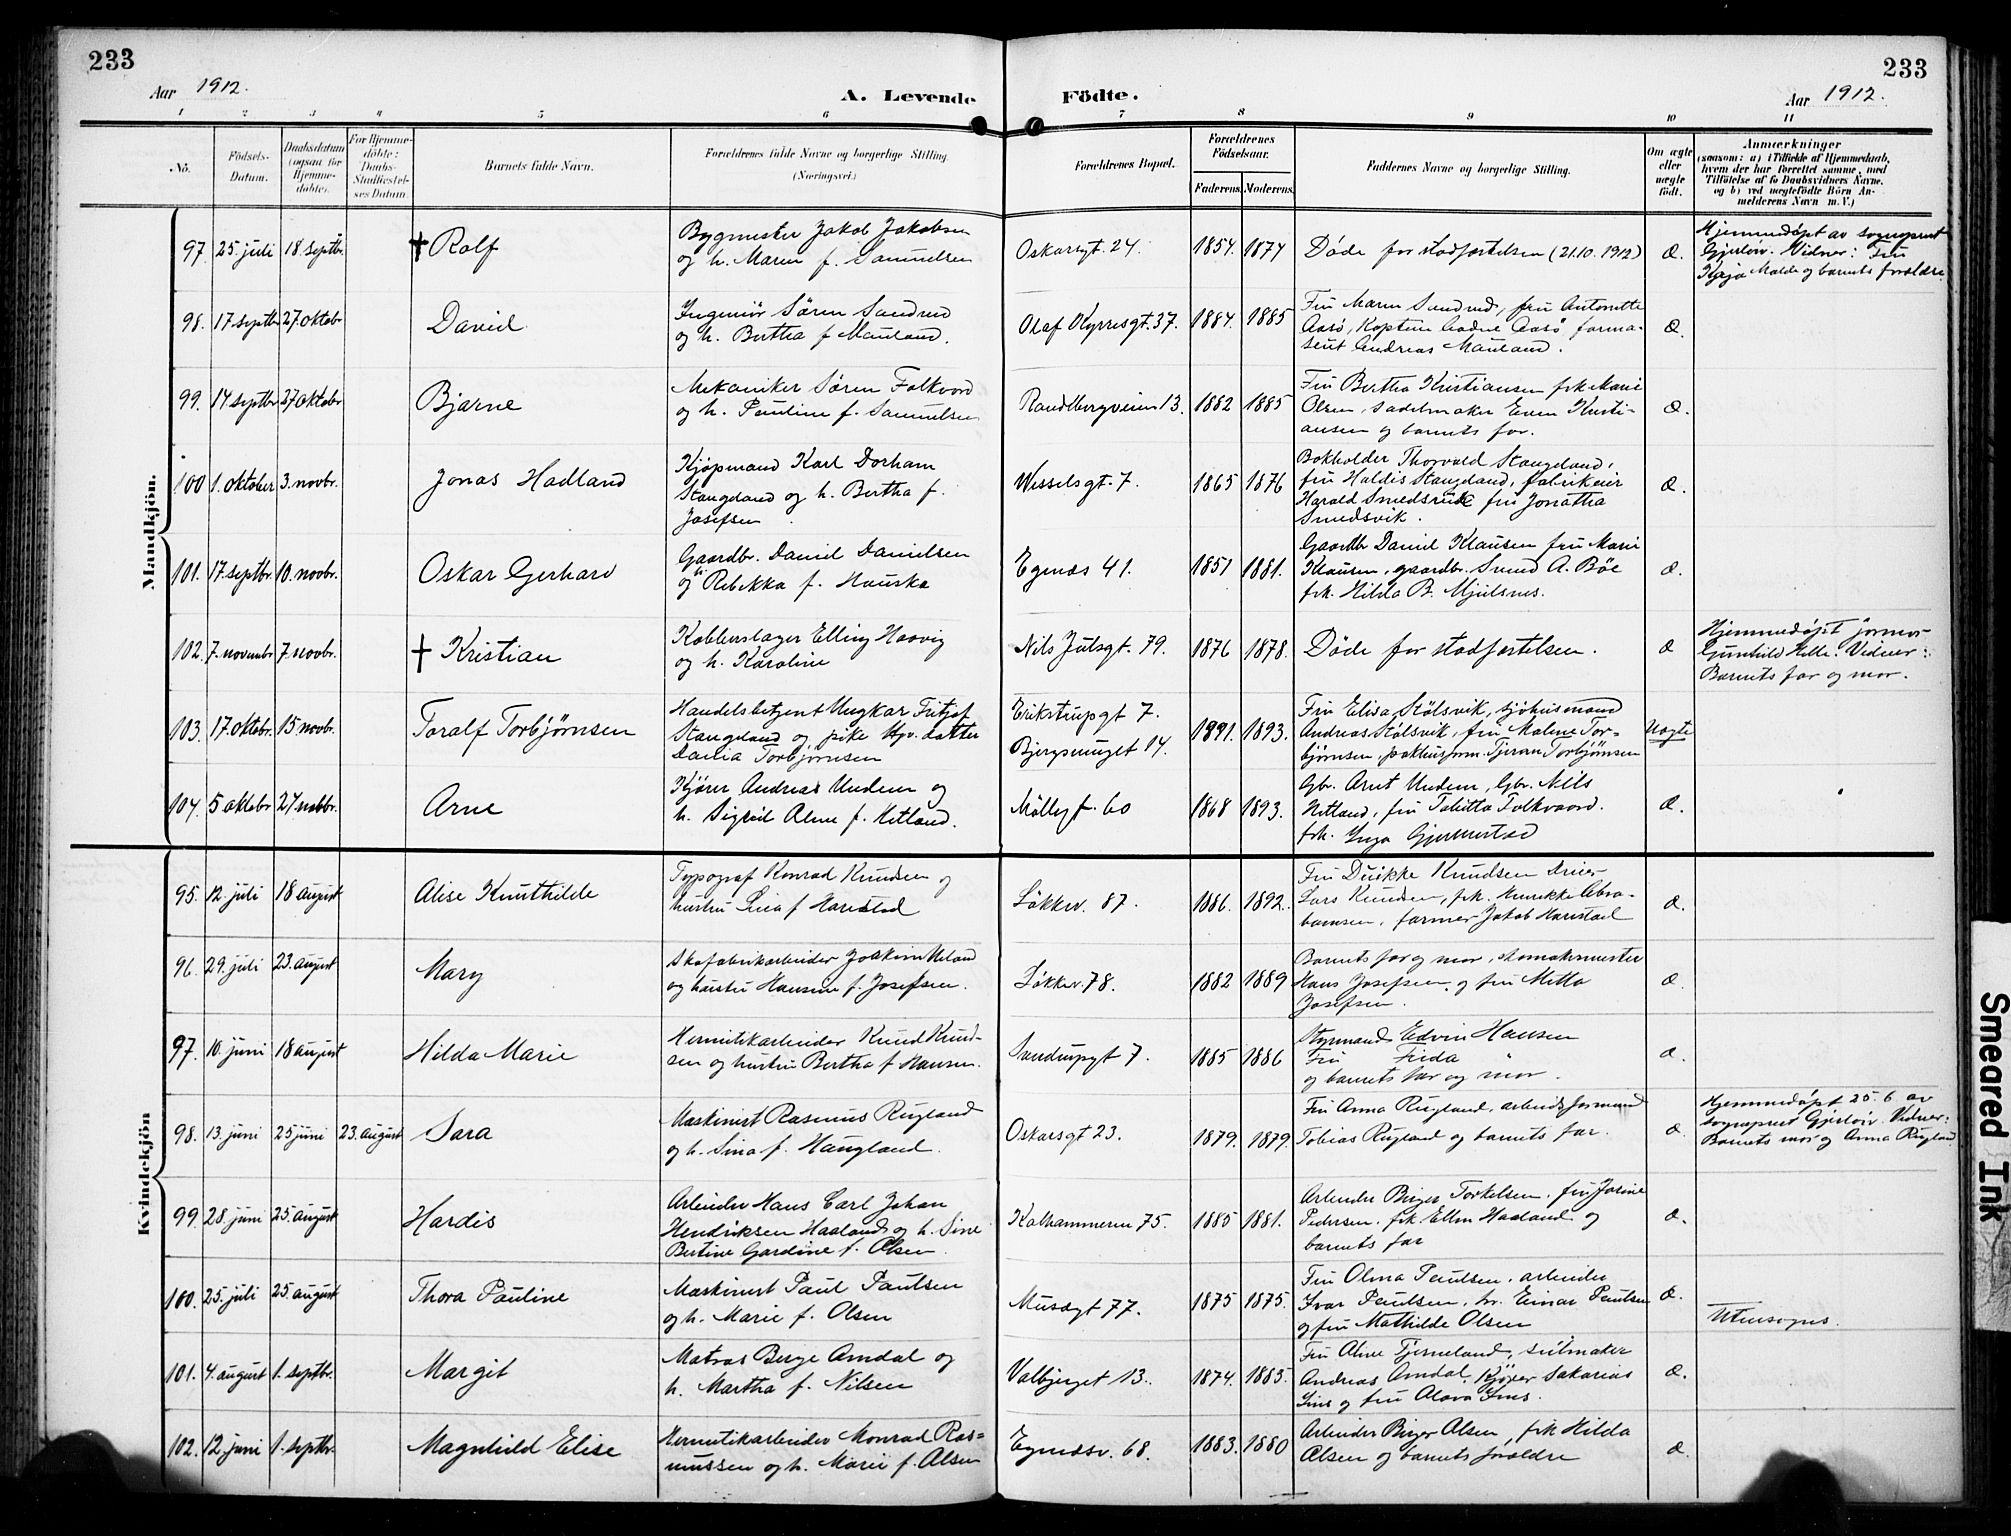 233
233
Aar 1912.
A. Levende
Födte.
Aar 1912.
1 2 3 4 5 6 7 8 9 10 11
No.
Födsels-
Datum.
Daabsdatum
(ogsaa for
Hjemme-
døbte).
For Hjemme-
döbte:
Daabs-
Stadfæstel-
ses Datum
Barnets fulde Navn.
Forældrenes fulde Navne og borgerlige Stilling.
(Næringsvei.)
Forældrenes Bopæl.
Forældrenes
Födselsaar.
Faderens.
Moderens.
Faddernes Navne og borgerlige Stilling.
Om ægte
eller
uægte
födt.
Anmærkninger
(saasom: a) i Tilfælde af Hjemmedaab,
hvem der har forrettet samme, med
Tilföielse af to Daabsvidners Navne.
og b) ved uægtefödte Börn An-
melderens Navn m. V.)
Mandkjön.
97. 25 juli 18 septbr. † Rolf
Bygmester Jakob Jakobsen
og h. Maren f. Samuelsen
Oskarsgt. 24. 1854. 1874
Døde før stadfæstelsen (21.10.1912)
Æ.
Hjemmedøpt av sogneprest
Gjerløw. Vidner: Fru
Kaja Malde og barnets forældre
98. 17 septbr 27. oktobr David
Ingeniør Søren Sandrud
og h. Bertha f. Mauland.
Olaf Kyrresgt. 37. 1884. 1885
Fru Maren Sandrud, fru Antonette
Aarø, Kaptein Aadne Aarø, farma-
seut Andreas Mauland.
Æ.
99. 14 septbr 27 oktobr Bjarne
Mekaniker Søren Folkvord
og h. Pauline f. Samuelsen
Randbergveien 13. 1882 1885
Fru Bertha Kristiansen frk. Marie
Olsen, Sadelmaker Even Kristi-
ansen og barnets far.
Æ.
100 1. oktober 3. novbr. Jonas Hadland
Kjøpmand Karl Dorham
Stangeland og h. Bertha f.
Josefsen
Wesselsgt. 7. 1865 1876
Bokholder Thorvald Stangeland,
fru Haldis Stangeland, fabrikeier
Harald Smedsrud fru Jonatha
Smedsvik.
Æ.
101. 17. septbr. 10. novbr. Oskar Gerhard
Gaardbr. Daniel Danielsen
og h. Rebekka f. Hauske
Egenæs 41. 1851 1881.
Gaardbr Daniel Klausen fru Marie
Klausen, gaardbr. Svend A. Bøe
frk. Hilda B. Mjelsnes.
Æ.
102. 7. novembr 7. novbr. † Kristian
Kobberslager Elling Haavig
og h. Karoline
Nils Julsgt. 79. 1876 1878.
Døde før stadfæstelsen.
Æ
Hjemmedøpt jormor
Gunhild Helle. Vidner:
Barnets far og mor.
103. 17. oktobr. 15. novbr. Toralf Torbjørnsen
Handelsbetjent Ungkar Fritjof
Stangeland og pike Hjv. datter
Dania Torbjørnsen
Erikstrupgt 7.
Bjergsmuget 14.
1891. 1893.
Fru Elisa Stølsvik, sjøhusmand
Andreas Stølsvik, fru Malene Tor-
bjørnsen, pakhusform. Tjeran Torbjørnsen
Uægte
104. 5 oktobr 24 novbr. Arne
Kjører Andreas Undem og
h. Sigrid Aline f. Hetland.
Møllegt. 60 1868 1893.
Gbr. Arnt Undem, Gbr. Nils
Hetland, fru Tabitta Folkvoord.
frk. Inga Gjermestad
Æ.
Kvindekjön
95. 12. juli 18 august Alise Knuthilde
Typograf Konrad Knudsen og
hustru Lina f Harestad
Løkkev. 87. 1886. 1892.
Fru Duikke Knudsen
Lars Knudsen, frk. Henrikke Abra-
hamsen, farmer Jakob Harestad
Æ.
96. 29. juli 23. august Mary
Skofabrikarbeider Joakim Heland
og hustru Hansine f. Josefsen.
Løkkev. 78. 1882 1889
Barnets far og mor,
Hans Josefsen, og fru Metha
Josefsen.
Æ.
97. 10. juni 18 august Hilda Marie
Hermitikarbeider Knud Knud-
sen og hustru Bertha f Hansen.
Sandrupgt 7. 1885 1886
Styrmand Edvin Hansen
Fru Frida "
og barnets far og mor.
Æ.
98. 13. juni 25 juni 23. august Sara
Maskinist Rasmus Rugland
og h. Sina f. Haugland.
Oskarsgt 23. 1879. 1879.
Fru Anna Rugland, arbeidsformand
Tobias Rugland og barnets far.
Æ
Hjemmedøpt 25.6. av
sogneprest Gjerløw. Vidner:
Barnets mor og Anna Rugland
99. 28. juni 25. august Hardis
Arbeider Hans Carl Johan
Hendriksen Haaland og h. Sine
Bertine Gardine f. Olsen.
Kalhammeren 75. 1885 1881.
Arbeider Birger Torkelsen, fru Josine
Pedersen, frk. Ellen Haaland og
barnets far
Æ.
100. 25. juli 25. august Thora Pauline
Maskinist Paul Paulsen
og h. Marie f. Olsen
Musægt 77. 1875 1875.
Fru Olma Paulsen, arbeider
Ivar Paulsen, hr. Einar Paulsen
og fru Mathilde Olsen
Æ.
Utensogns.
101. 4. august 1. septbr. Margit
Matros Berge Amdal og
h. Martha f. Nilsen
Valbjerget 13. 1874. 1885.
Fru Aline Tjemeland, seilmaker
Andreas Amdal, Kjører Sakarias
Lius og fru Olava Lius.
Æ.
102. 12. juni 1. septbr. Magnhild Elise
Hermetikarbeider Monrad Ras-
mussen og h. Marie f. Alsen
Egenæsv. 68. 1883. 1880
Arbeider Birger Alsen, frk Hilda
Alsen og barnets forældre
Æ.
Smeared Ink